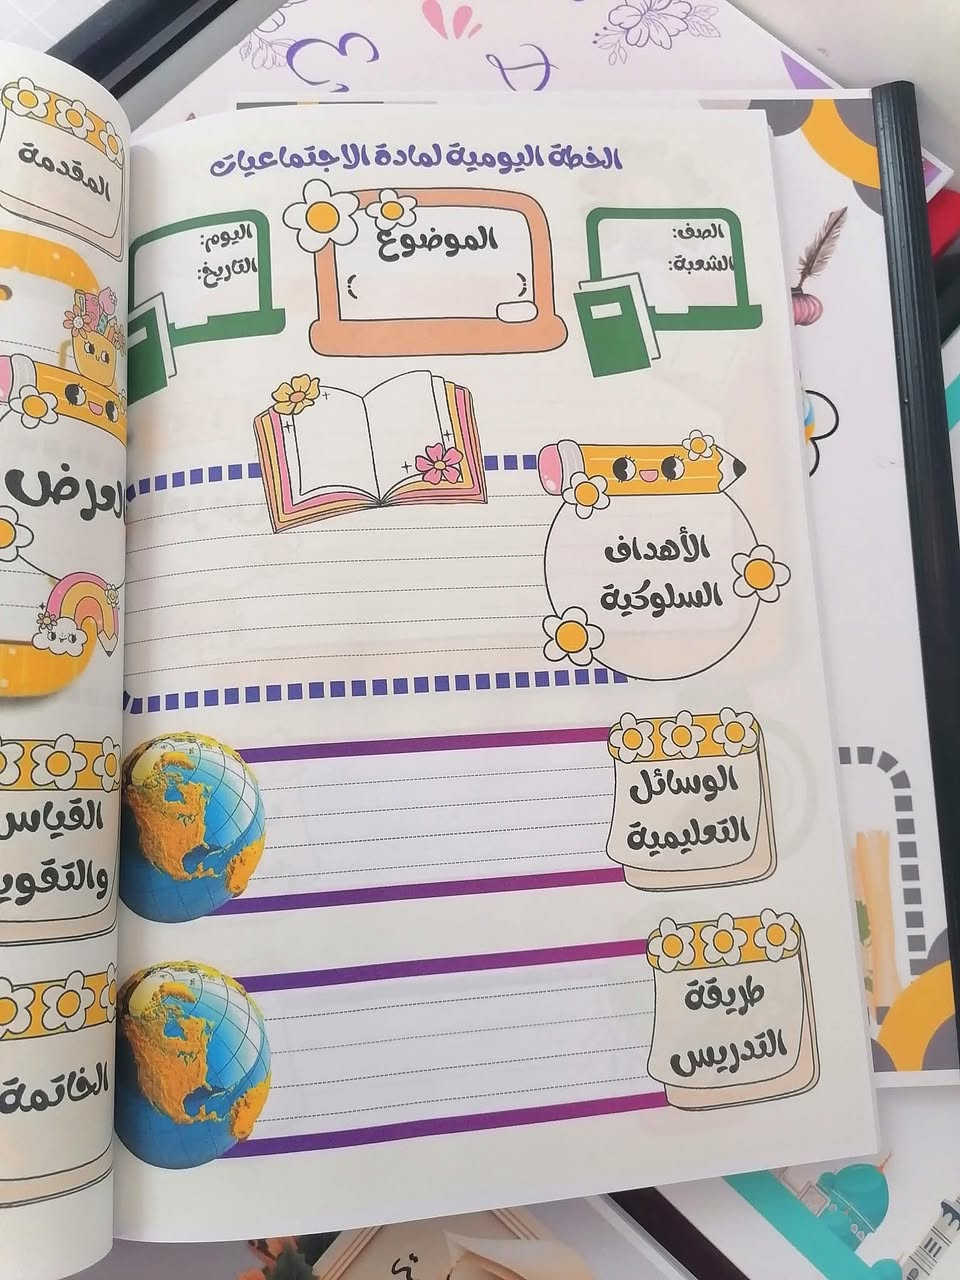 الخطة اليومية لمادة الاجتماعيات
الصف:
الشعبة:
الموضوع
( )
اليوم:
التاريخ:
الأهداف
السلوكية
الوسائل
التعليمية
طريقة
التدريس
المقدمة
العرض
القياس
والتقويم
الخاتمة